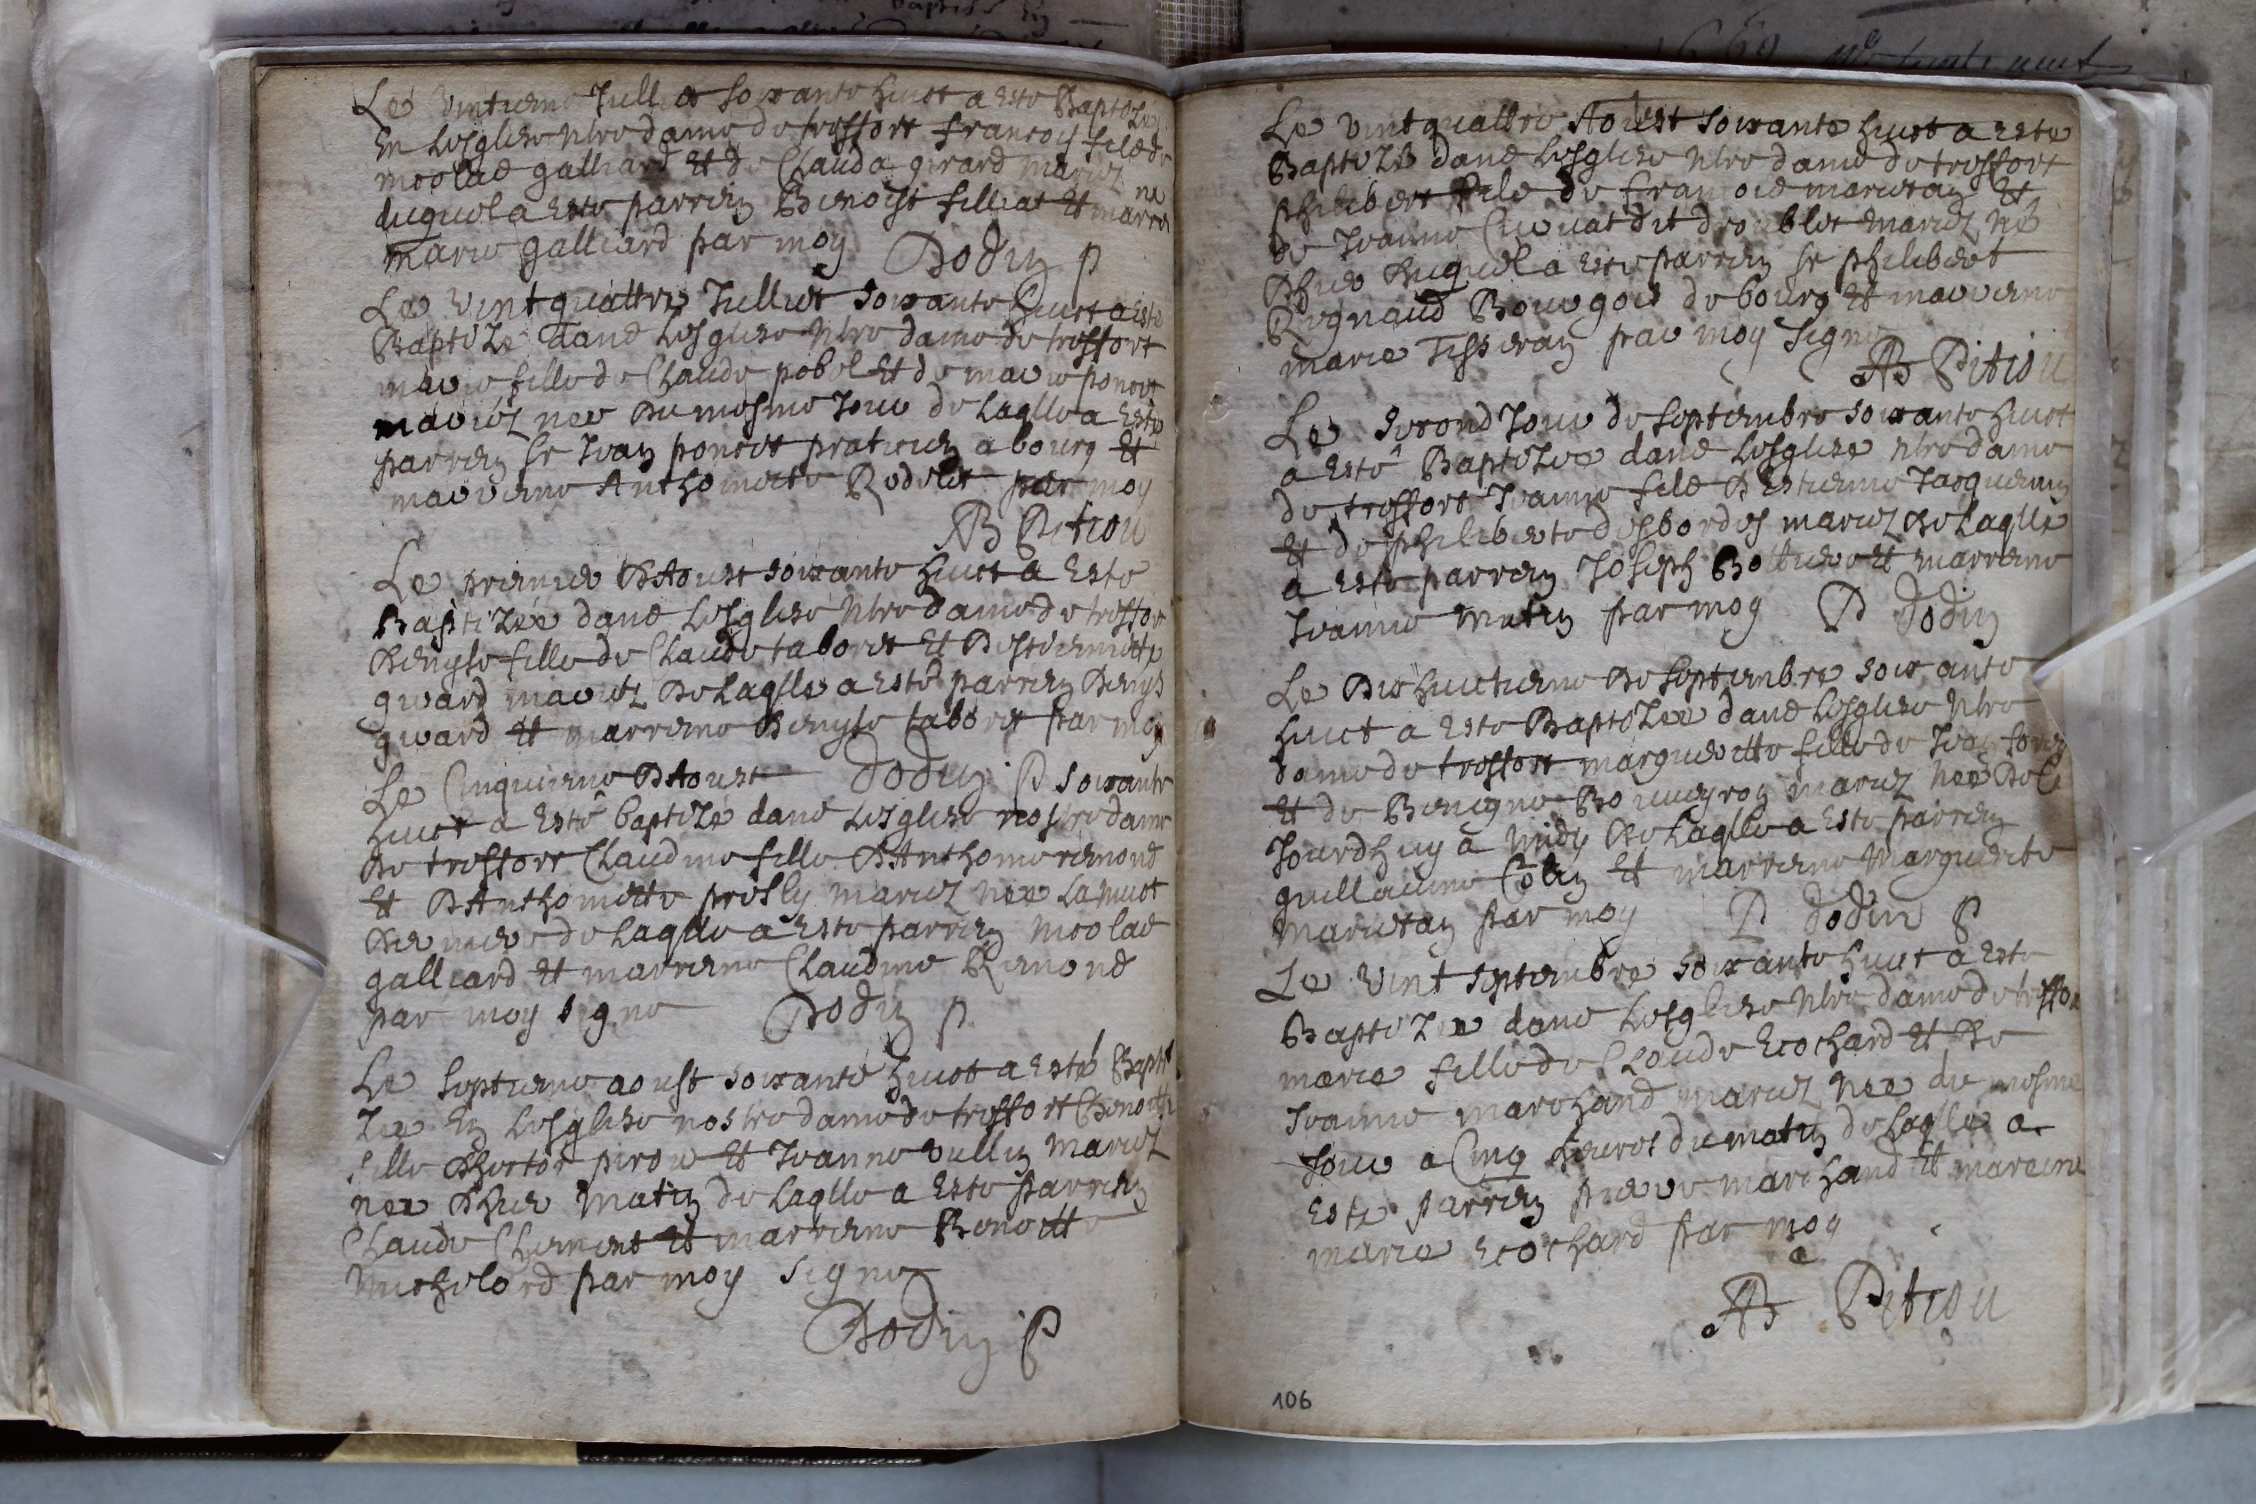 Le vintieme Jullet soixante huict a este Baptize
En Lesglise nre dame de treffort francoys filz de
nicolas galliard Et de Clauda girard mariez
duquel a este parrein Benoist filliat Et marrene
marie galliard par moy Dodin p
Le vintquattre Julliet soixante huict a este
Baptizé dans Lesglise nre dame de treffort
marie fille de Claude pobel Et de marie poncet
mariez nee du mesme jour de laqlle a Esté
parrein sr Jean poncet praticien a bourg Et
marreine Anthoinette Rodet par moy
AB Petiou
Le premier d'Aoust soixante huict a Esté
Baptizée dans Lesglise nre dame de treffor
denyse fille de Claude taboret Et d'estiennette
girard mariez de Laqlle a esté parrein denys
girard Et marreine denyse taboret par moy
Le Cinquieme d'Aoust Dodin P soixante
huict a esté baptizé dans Lesglise nostre dame
de treffort Claudine fille d'Anthoine remond
Et d'Anthoinette presly mariez nee La nuict
derniere de laqlle a este parrein nicolas
galliard Et marreine Claudine Remond
par moy signe Dodin p
Le septieme aoust soixante huict a esté Bapti
zee En Lesglise nostre dame de treffort Benoitte
fille d'hector pirou Et Jeanne vullin mariez
nee d'hier matin de laqlle a este parrein
Claude Clement Et marreine Benoitte
Michelord par moy signe
Dodin P
Le vintquattre Aoust soixante huict a este
Baptizé dans Lesglise nre dame de treffort
philibert filz de francois marietan Et
de Jeanne Cuvat dit droublet mariez né
d'hier duquel a este parrein sr philibert
Regnaud Bourgois de bourg Et marreine
marie Tisseran par moy signe
AB Petiou
Le second Jour de septembre soixante huict
a esté Baptizee dans Lesglise nre dame
de treffort Jeanne file d'Estienne Jacquemin
Et de philiberte desbordes mariez de Laqlle
a este parrein Joseph Bottier Et marreine
Jeanne matin par moy P dodin
Le dixhuictieme de septembre soixante
huict a este Baptizee dans Lesglise nre
dame de treffort margueritte fille de Jean
Et de Benigne mariez nee de ce
Jourdhuy a midy de laqlle a este parrein
guillaume Colin Et marreine marguerite
marietan par moy P dodin P
Le vint septembre soixante huict a este
Baptizee dans Lesglise nre dame de treffor
marie fille de Claude Ecochard Et de
Jeanne marchand mariez nee du mesme
jour a Cinq heures du matin de laqlle a
este parrein pierre marchand Et marreine
marie Ecochard par moy
AB Petiou
106